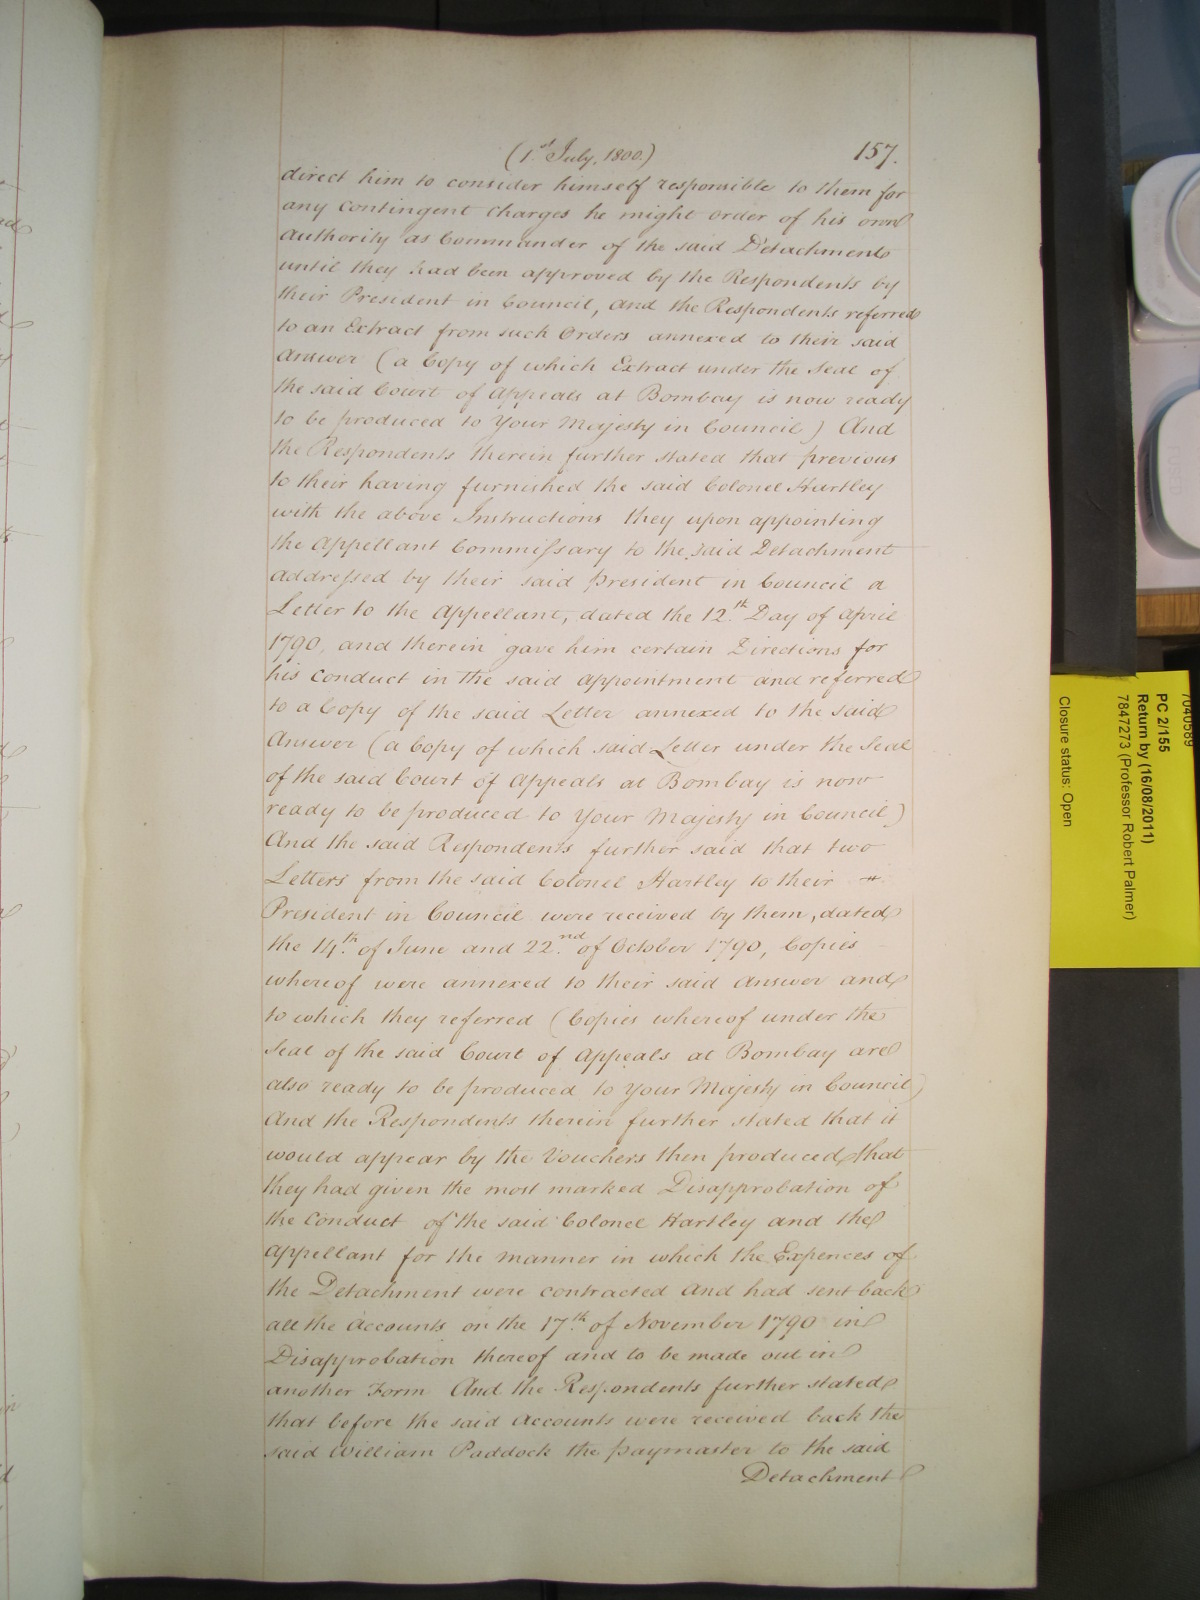 (1.st July, 1800.) 157.
direct him to consider himself responsible to them for
any Contingent Charges he might order of his own
Authority as Commander of the said Detachment
until they had been approved by the Respondents by
their President in Council, and the Respondents referred
to an Extract from such Orders annexed to their said
Answer (a Copy of which Extract under the Seal of
the said Court of Appeals at Bombay is now ready
to be produced to Your Majesty in Council) And
the Respondents therein further stated that previous
to their having furnished the said Colonel Hartley
with the above Instructions they upon appointing
the Appellant Commissary to the said Detachment
addressed by their said President in Council a
Letter to the Appellant, dated the 12.th Day of April
1790, and therein gave him certain Directions for
his Conduct in the said Appointment and referred
to a Copy of the said Letter annexed to the said
Answer (a Copy of which said Letter under the Seal
of the said Court of Appeals at Bombay is now
ready to be produced to Your Majesty in Council)
And the said Respondents further said that two
Letters from the said Colonel Hartley to their
President in Council were received by them, dated
the 14.th of June and 22.nd of October 1790, Copies
whereof were annexed to their said Answer and
to which they referred (Copies whereof under the
Seal of the said Court of Appeals at Bombay are
also ready to be produced to Your Majesty in Council)
And the Respondents therein further stated that it
would appear by the Vouchers then produced that
they had given the most marked Disapprobation of
the Conduct of the said Colonel Hartley and the
Appellant for the manner in which the Expences of
the Detachment were contracted and had sent back
all the Accounts on the 17.th of November 1790 in
Disapprobation thereof and to be made out in
another Form And the Respondents further stated
that before the said Accounts were received back the
said William Paddock the Paymaster to the said
Detachment
PC 2/155
Return by (16/08/2011)
7847273 (Professor Robert Palmer)
Closure status: Open